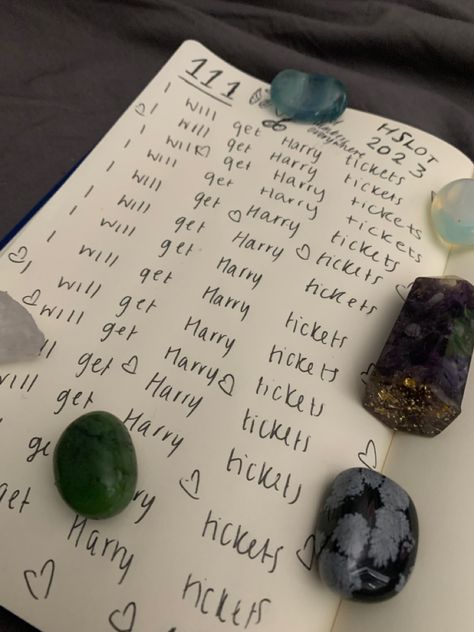 111
HSLOT
2023
everywhere
I will get Harry tickets
I will get Harry tickets
I will get Harry tickets
I will get Harry tickets
I will get Harry tickets
I will get Harry tickets
I will get Harry tickets
I will get Harry tickets
will get Harry tickets
will get Harry tickets
ll get Harry tickets
will get Harry tickets
get ry tickets
get Harry tickets